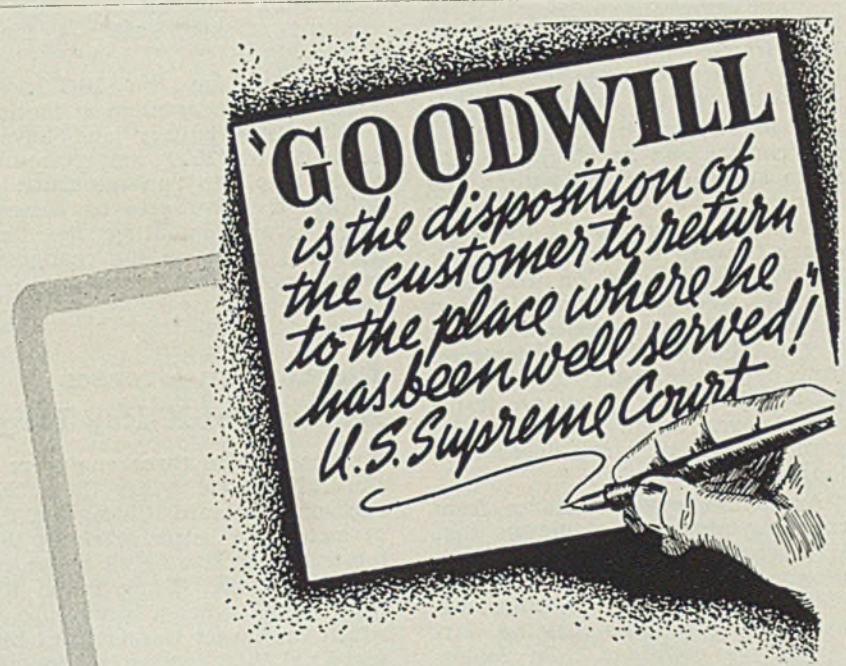 "GOODWILL
is the disposition of
the customer to return
to the place where he
has been well served!"
U.S. Supreme Court